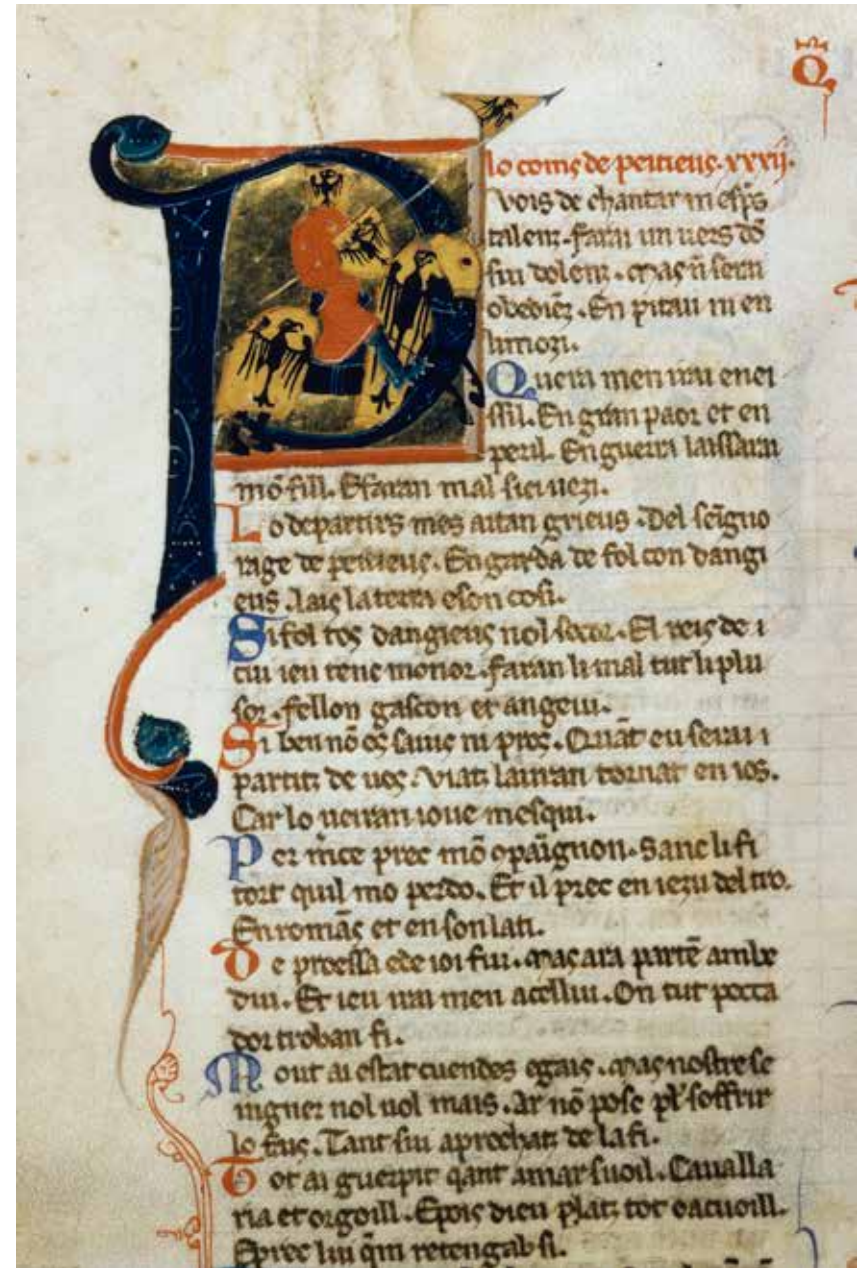 Q
lo coms de peitieus. xxxij.
Pois de chantar mes pͥs
talenz. farai un uers dō
sui dolenz. mas ñ serai
obediēz. En pitau ni en
limozi.
Quera men irai enei
ssil. En gran paor et en
peril. En guerra laissarai
mō fill. E faran mal siei uezi.
Lo departirs mes aitan grieus. Del seigno
rage de peitieus. En garda de folcon dangi
eus. lais la terra e son cosi.
Si folcos dangieus nol socor. El reis de i
cui ieu tenc monor. faran li mal tut li plu
sor. fellon gascon et angeui.
Si ben nō es sauis ni pros. Quāt eu serai i
partitz de uos. Viatz lauran tornat en ios.
Car lo ueiran ioue mesqui.
Per m̄ce prec mō opaignon. sanc li fi
tort quil mo perdo. Et il prec en iezu del tro.
En romās et en son lati.
De proessa e de ioi fui. mas ara partē ambe
dui. Et ieu irai men acellui. On tut pecca
dor troban fi.
Mout ai estat cuendes e gais. mas nostre se
nigner nol uol mais. Ar nō posc pl' soffrir
lo fais. Tant sui aprochatz de la fi.
Tot ai guerpit qant amar suoil. Caualla
ria et orgoill. E pois dieu platz tot o acuoill.
E prec lui qm retengab si.